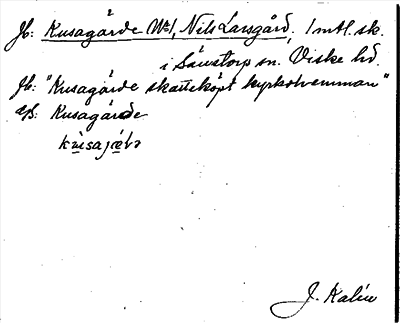 Jb: Kusagärde No 1, Nils Larsgård, 1 mtl. sk.
i Sänstorp sn. Viske hd.
Jb: "Kusagärde skatteköpt kyrkohemman"
a/B: Kusagärde
J. Kalén